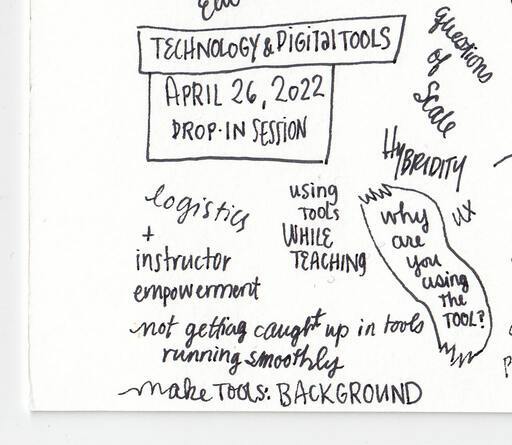 TECHNOLOGY & DIGITAL TOOLS
APRIL 26, 2022
DROP-IN SESSION
questions
of
Scale
HYBRIDITY
UX
logistics
+
instructor
empowerment
using
TOOLS
WHILE
TEACHING
why
are
you
using
the
TOOL?
not getting caught up in tools
running smoothly
make TOOLS: BACKGROUND